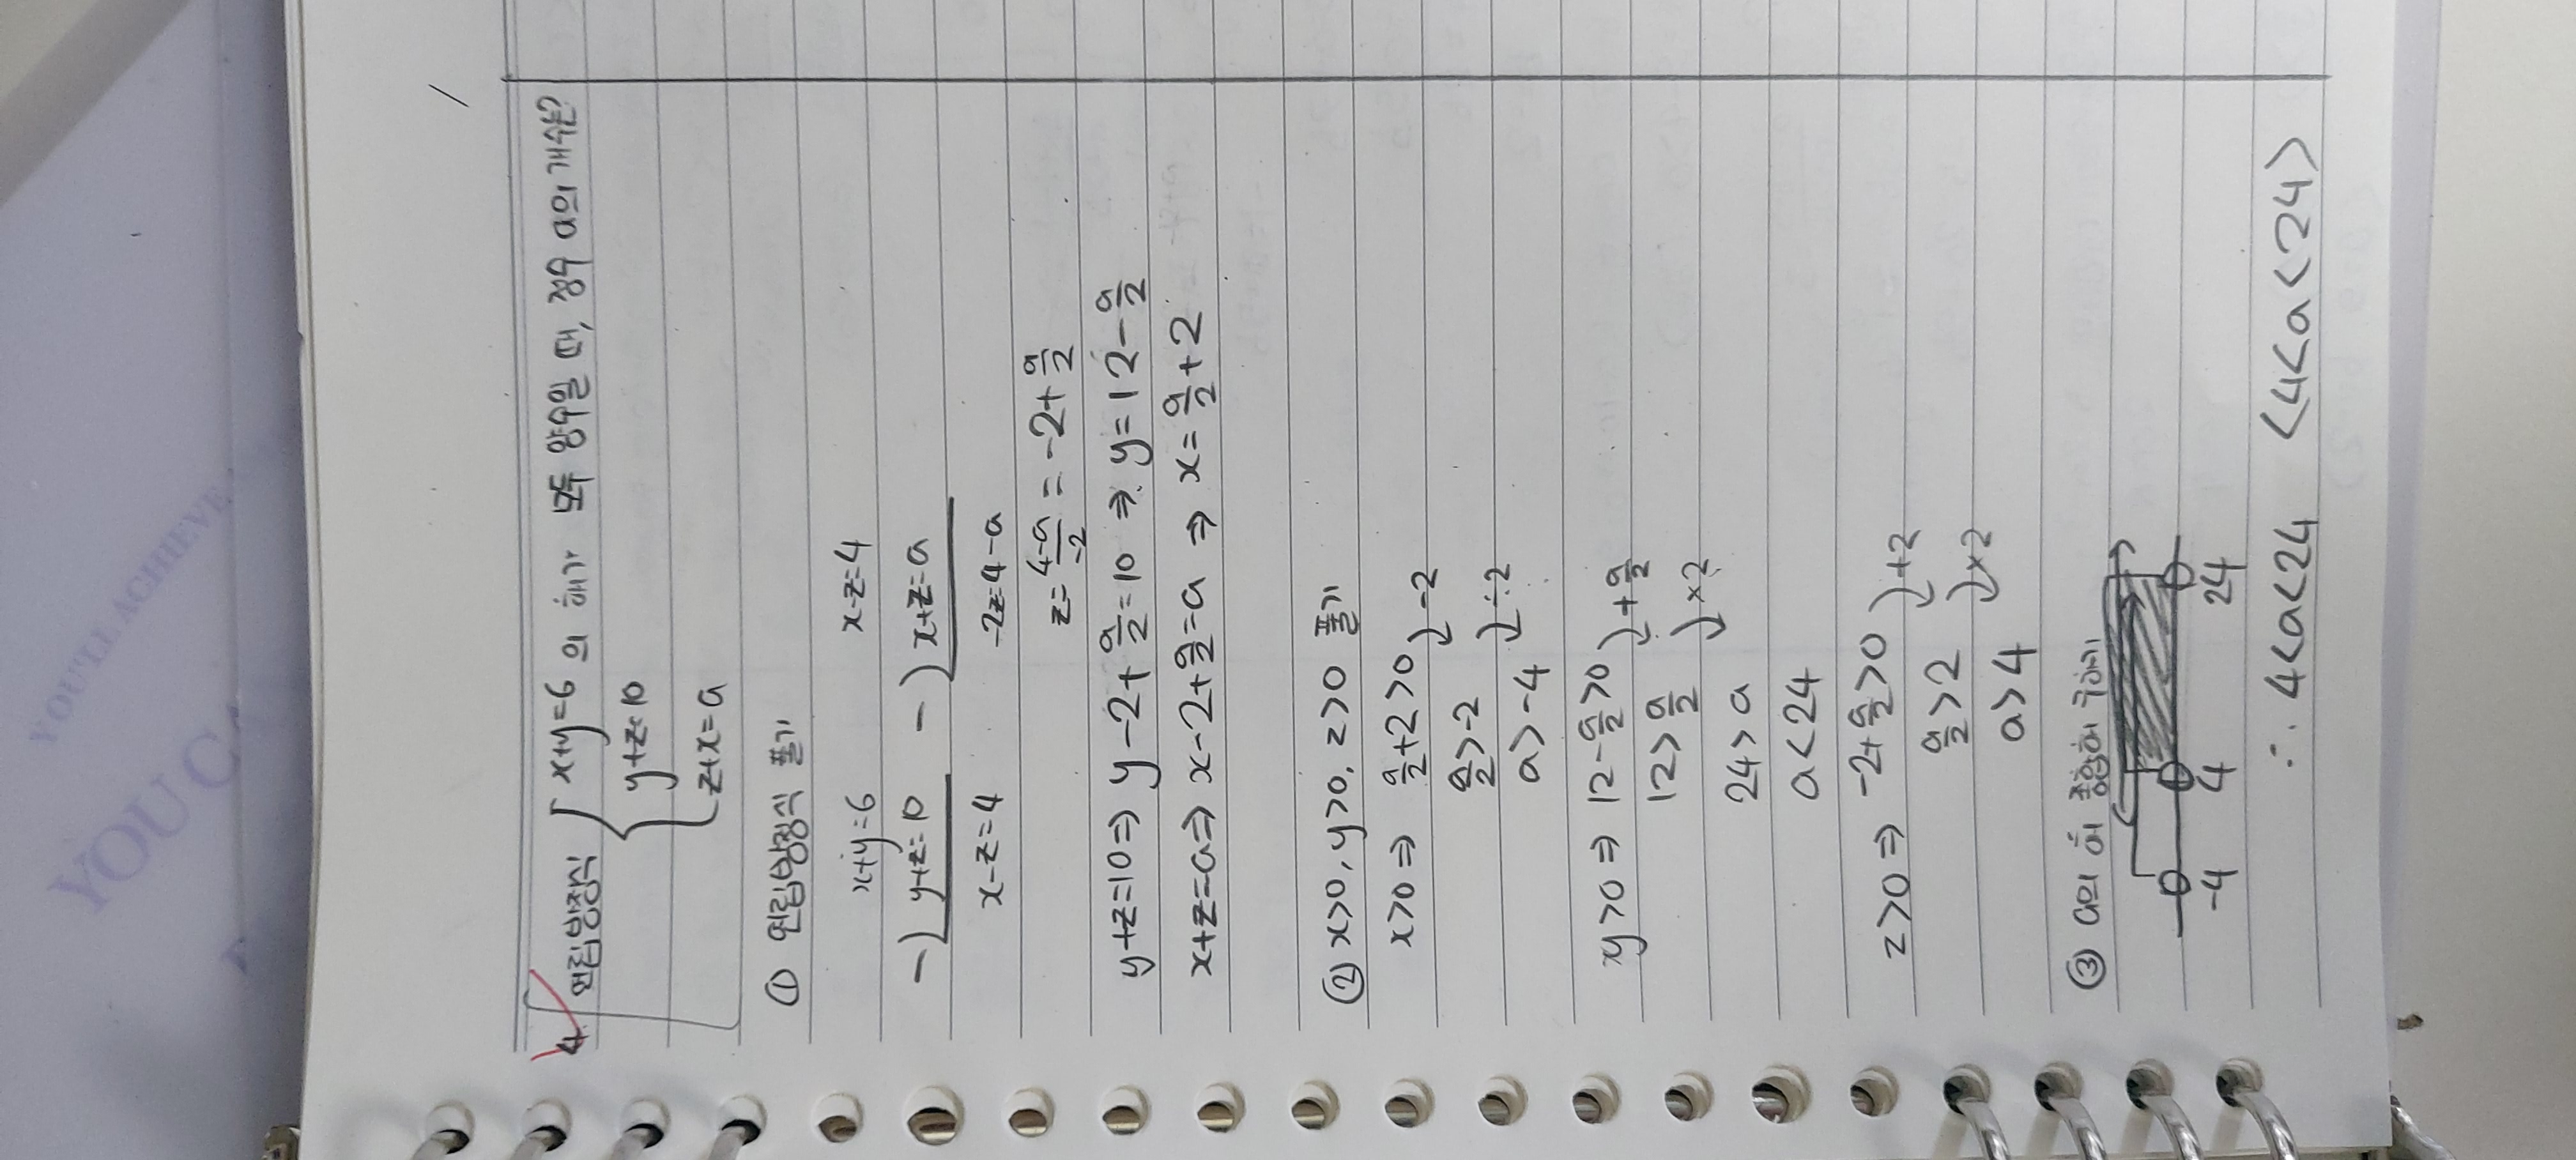 4 연립방정식 { x+y=6 의 해가 모두 양수일 때, 정수 a의 개수는?
y+z=10
z+x=a
① 연립방정식 풀기
x+y=6 x-z=4
-) y+z=10 -) x+z=a
x-z=4 -2z=4-a
z=\frac{4-a}{-2} = -2+\frac{a}{2}
y+z=10 ⇒ y-2+\frac{a}{2}=10 ⇒ y=12-\frac{a}{2}
x+z=a ⇒ x-2+\frac{a}{2}=a ⇒ x=\frac{a}{2}+2
② x>0, y>0, z>0 풀기
x>0 ⇒ \frac{a}{2}+2>0 -2
\frac{a}{2}>-2 ÷2
a>-4
xy>0 ⇒ 12-\frac{a}{2}>0 +\frac{a}{2}
12>\frac{a}{2} ×2
24>a
a<24
z>0 ⇒ -2+\frac{a}{2}>0 +2
\frac{a}{2}>2 ×2
a>4
③ a의 해 종합해 구하기
-4 4 24
∴ 4<a<24 <4<a<24>
YOU'LL ACHIEVE
YOU CA